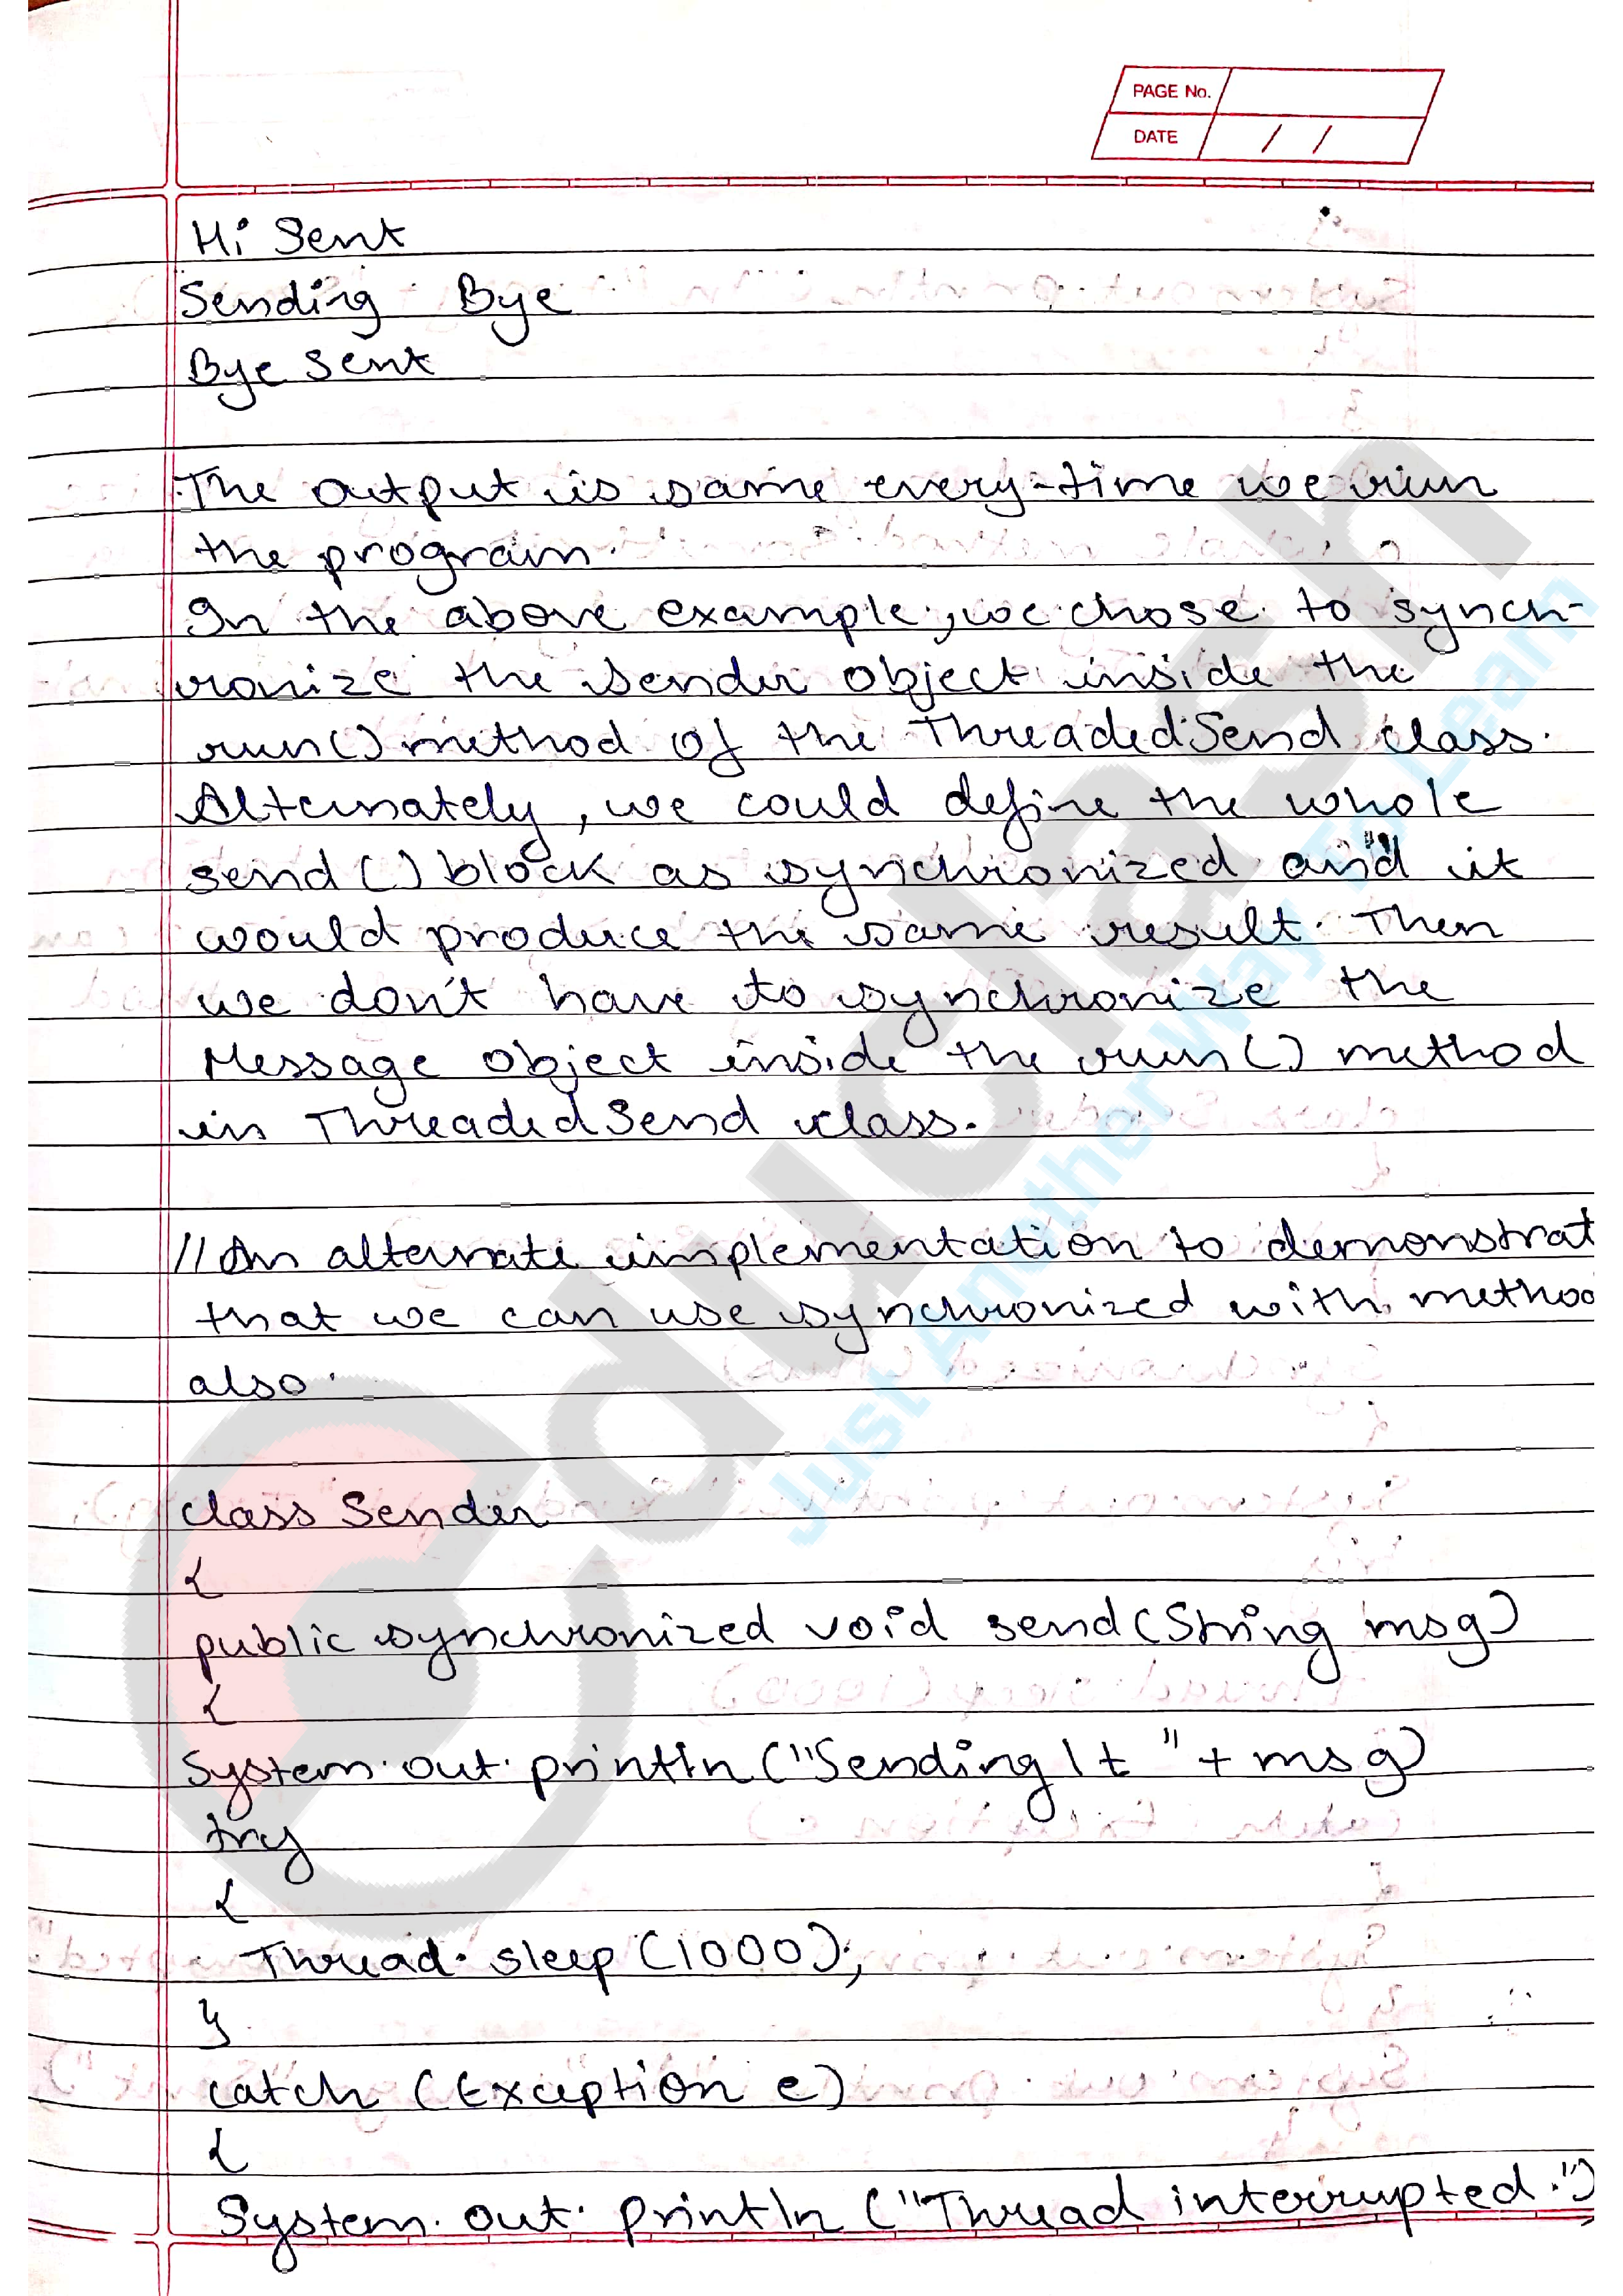 PAGE No.
DATE / /
Hi Sent
Sending Bye
Bye Sent
The output is same every-time we run
the program.
In the above example, we chose to synch-
ronize the Sender object inside the
run() method of the ThreadedSend class.
Alternately, we could define the whole
send() block as synchronized and it
would produce the same result. Then
we don't have to synchronize the
Message object inside the run() method
in ThreadedSend class.
//An alternate implementation to demonstrat
that we can use synchronized with metho
also.
class Sender
{
public synchronized void send(String msg)
{
System.out.println("Sending\t " + msg)
try
{
Thread.sleep(1000);
}
catch (Exception e)
{
System.out.println("Thread interrupted.")
educlash
Just Another Way To Learn